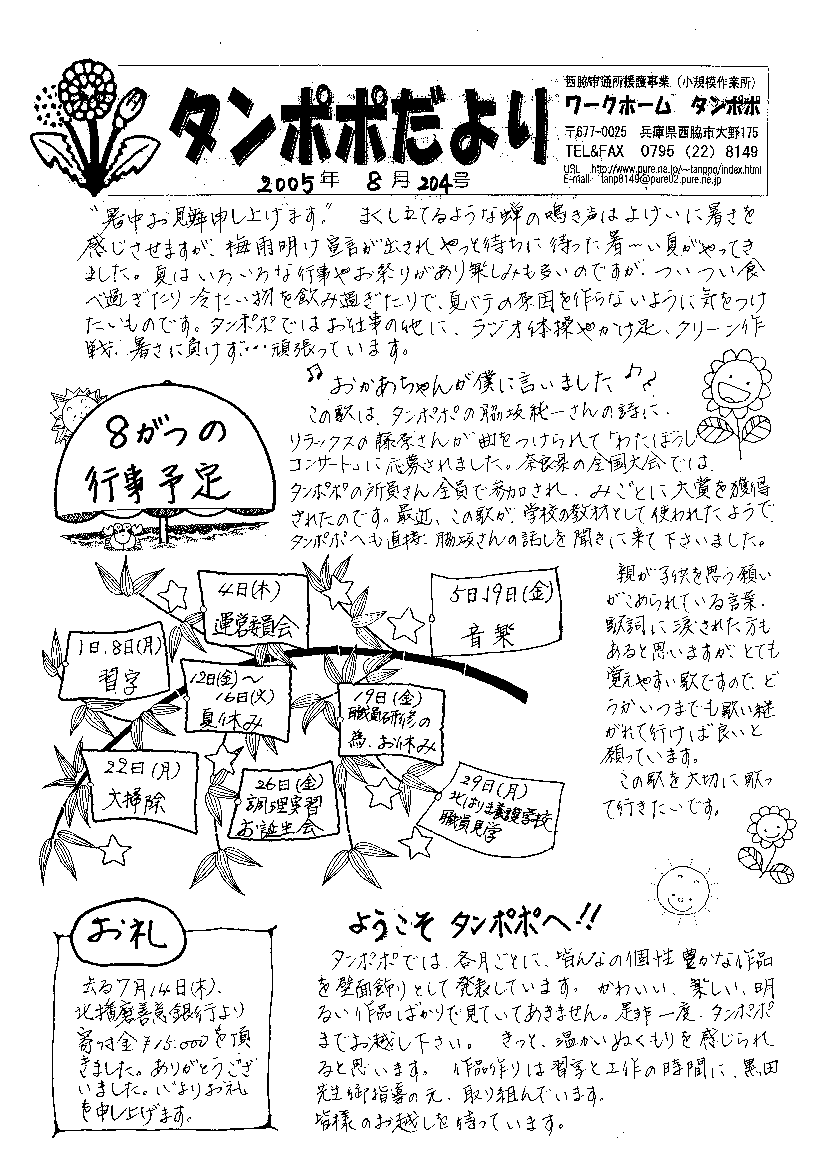 西脇市通所援護事業（小規模作業所）
ワークホーム タンポポ
〒677-0025 兵庫県西脇市大野175
TEL&FAX 0795（22）8149
URL http://www.pure.ne.jp/~tanpo/index.html
E-mail: tanp8149@pure02.pure.ne.jp
タンポポだより
2005年 8月 204号
"暑中お見舞申し上げます。" まくし立てるような蝉の鳴き声はよけいに暑さを
感じさせますが、梅雨明け宣言が出されやっと待ちに待った暑〜い夏がやってき
ました。夏はいろいろな行事やお祭りがあり楽しみも多いのですが、ついつい食
べ過ぎたり冷たい物を飲み過ぎたりで、夏バテの原因を作らないように気をつけ
たいものです。タンポポではお仕事の他に、ラジオ体操やかけ足、クリーン作
戦、暑さに負けず…頑張っています。
♪おかあちゃんが僕に言いました♪
この歌は、タンポポの脇坂純一さんの詩に、
リラックスの藤原さんが曲をつけられて「わたぼうし
コンサート」に応募されました。奈良県の全国大会では、
タンポポの所員さん全員で参加され、みごとに大賞を獲得
されたのです。最近、この歌が、学校の教材として使われたようで、
タンポポへも直接、脇坂さんの話しを聞きに来て下さいました。
親が子供を思う願い
がこめられている言葉、
歌詞に涙された方も
あると思いますが、とても
覚えやすい歌ですので、ど
うかいつまでも歌い継
がれて行けば良いと
願っています。
この歌を大切に歌っ
て行きたいです。
8がつの
行事予定
4日(木)
運営委員会
5日.19日(金)
音楽
1日.8日(月)
習字
12日(金)〜
16日(火)
夏休み
19日(金)
職員研修の
為、お休み
22日(月)
大掃除
26日(金)
調理実習
お誕生会
29日(月)
北はりま養護学校
職員見学
お礼
去る7月14日(木)、
北播磨善意銀行より
寄付金¥15.000を頂
きました。ありがとうござ
いました。心よりお礼
を申し上げます。
ようこそ タンポポへ!!
タンポポでは、各月ごとに、皆んなの個性豊かな作品
を壁面飾りとして発表しています。かわいい、楽しい、明
るい作品ばかりで見ていてあきません。是非一度、タンポポ
までお越し下さい。きっと、温かいぬくもりを感じられ
ると思います。作品作りは習字と工作の時間に、黒田
先生御指導の元、取り組んでいます。
皆様のお越しを待っています。